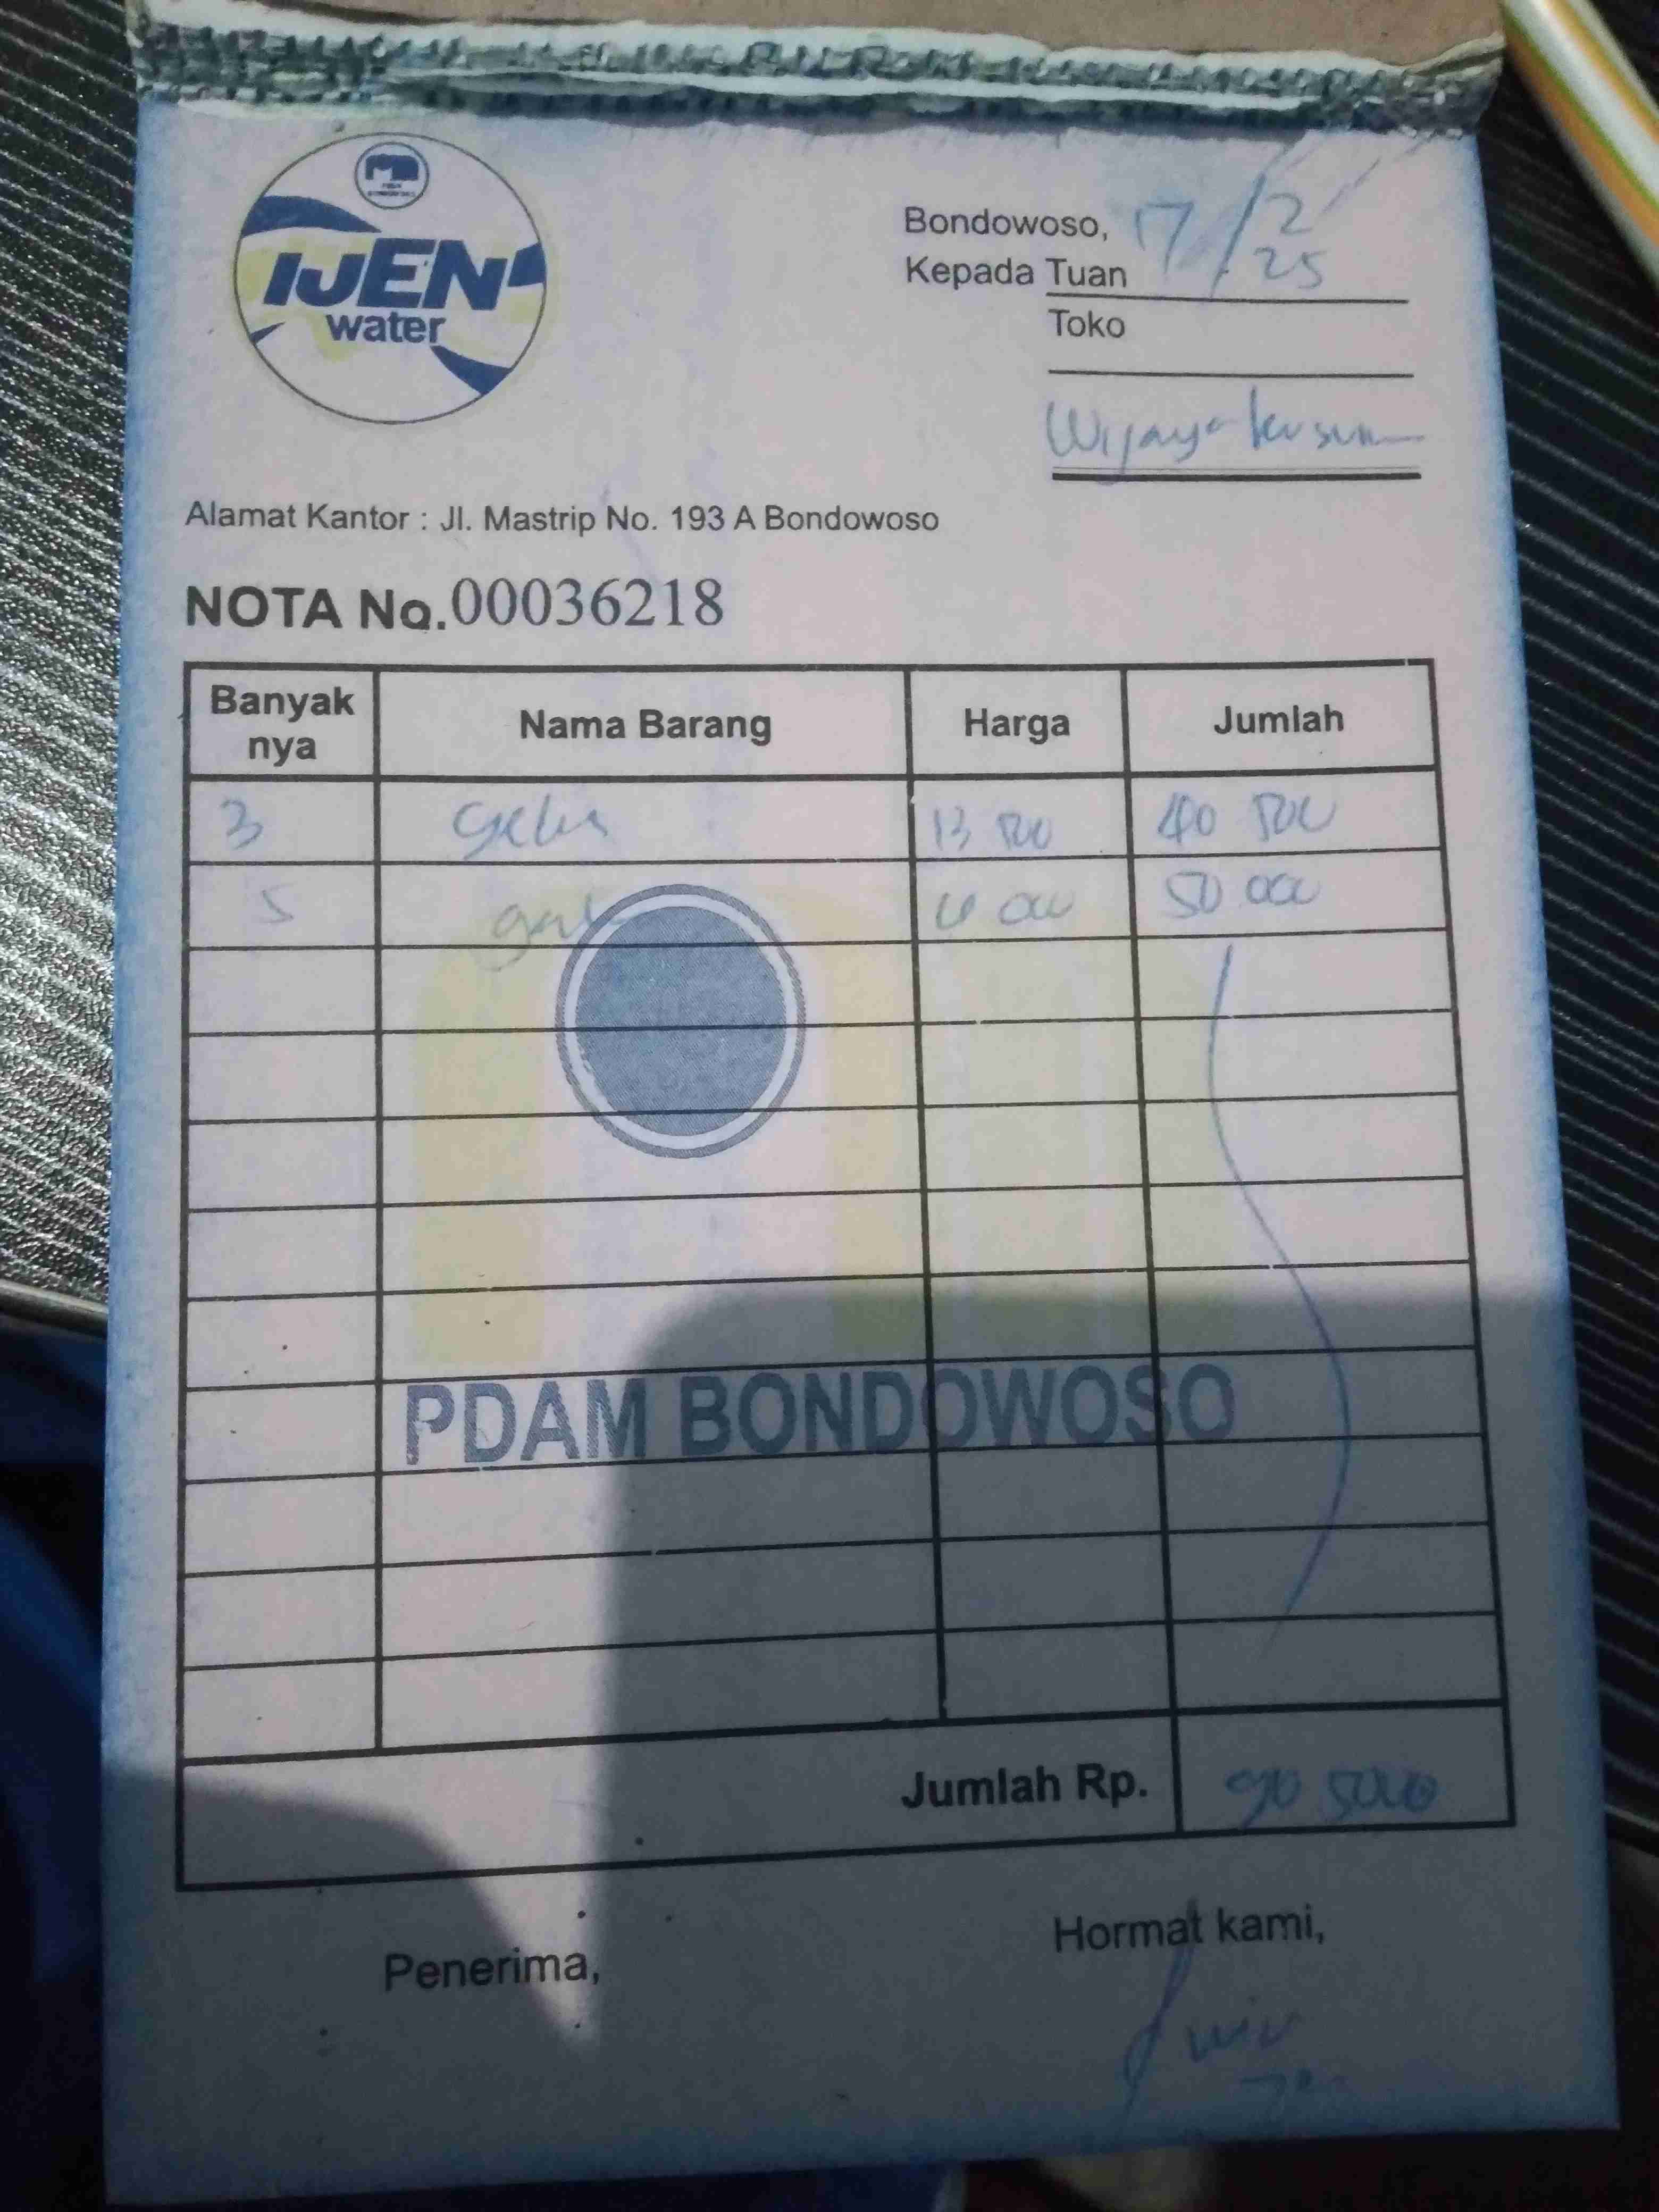 IJEN
water
Bondowoso, 17/2/25
Kepada Tuan
Toko
Wijaya kusuma
Alamat Kantor : Jl. Mastrip No. 193 A Bondowoso
NOTA No. 00036218
Banyak nya Nama Barang Harga Jumlah
3 Gelas 13 500 40 500
5 gal 50 000
PDAM BONDOWOSO
Jumlah Rp. 90 500
Penerima,
Hormat kami,